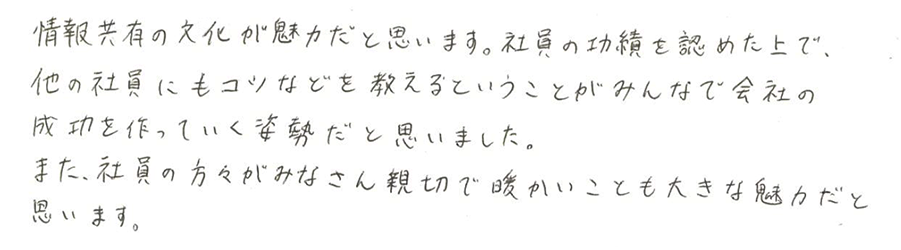 情報共有の文化が魅力だと思います。社員の功績を認めた上で、
他の社員にもコツなどを教えるということがみんなで会社の
成功を作っていく姿勢だと思いました。
また、社員の方々がみなさん親切で暖かいことも大きな魅力だと
思います。